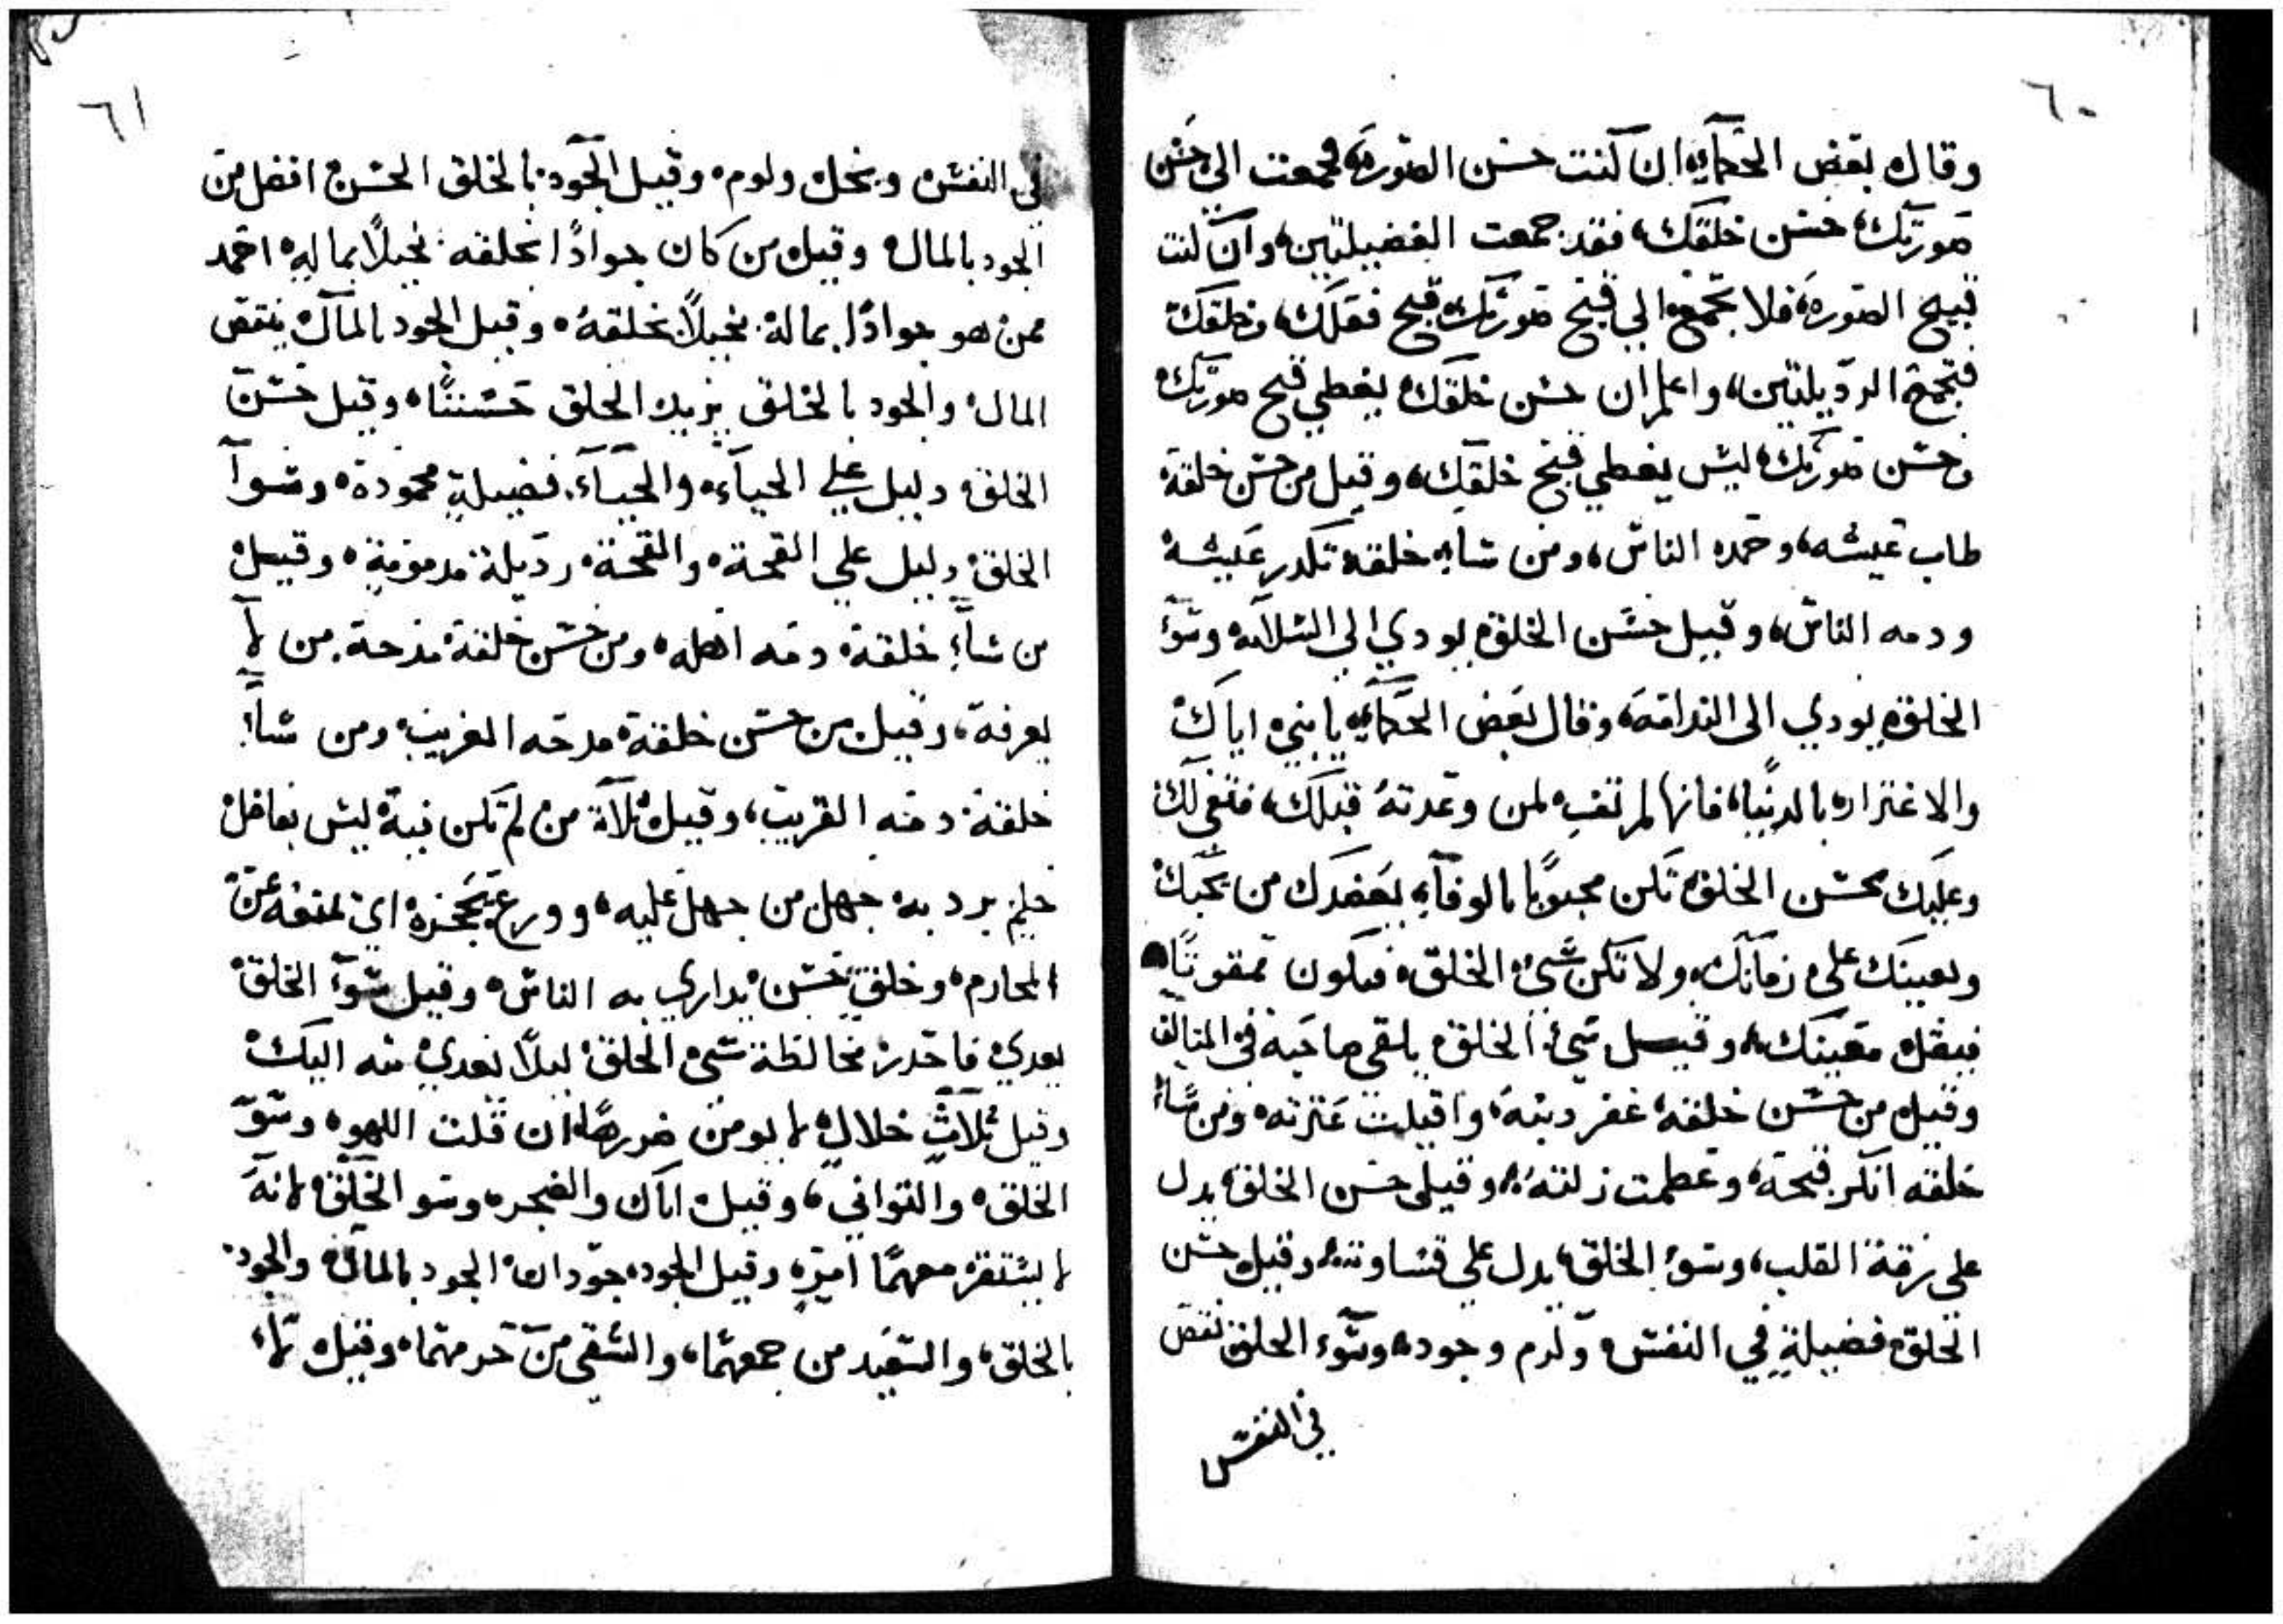 ٦٠
وقال بعض الحكماء ان كنت حسن الصورة فجمعت الي حسن
صورتك حسن خلقك، فقد جمعت الفضيلتين، وان كنت
قبيح الصورة، فلا تجمع الي قبح صورتك قبح فعلك، وخلقك
فتجمع الرديلتين، واعلم ان حسن خلقك يغطي قبح صورتك
وحسن صورتك ليس يغطي قبح خلقك، وقيل من حسن خلقة
طاب عيشه، وحمده الناس، ومن ساء خلقه تكدر عيشه
ودمه الناس، وقيل حسن الخلق يودي الى السلامه وسؤ
الخلق يودي الى الندامة، وقال بعض الحكماء يا بني اياك
والاغترار بالدنيا، فانها لم تفي لمن وعدته قبلك، فتفي لك
وعليك بحسن الخلق تكن محبوبا بالوفاء يعضدك من يحبك
ويعينك على زمانك، ولا تكن سيئ الخلق، فتكون ممقوتا،
فيقل معينك، وقيل سيئ الخلق يلقي صاحبه في المتالف
وقيل من حسن خلقه غفر دنبه، واقيلت عترته، ومن ساء
خلقه انكر قبحه، وعظمت زلته، وقيل حسن الخلق يدل
على رقة القلب، وسوء الخلق، يدل على قساوته، وقيل حسن
الخلق فضيلة في النفس وكرم وجود، وسوء الخلق نقص
في النفس
٦١
في النفس وبخل ولوم، وقيل الجود بالخلق الحسن افضل من
الجود بالمال وقيل من كان جوادا بخلقه بخيلا بماله احمد
ممن هو جوادا بماله بخيلا بخلقه، وقيل الجود بالمال ينقص
المال، والجود بالخلق يزيد الخلق حسننا، وقيل حسن
الخلق دليل علي الحياء، والحياء فضيلة محمودة، وسوا
الخلق دليل علي القحة، والقحة رديلة مدمومة، وقيل
من ساء خلقة دمه اهله، ومن حسن خلقة مدحة من لا
يعرفة، وقيل من حسن خلقة مدحه الغريب ومن ساء
خلقة دمه القريب، وقيل ثلاثة من لم تكن فيه ليس بعاقل
حلم يرد به جهل من جهل عليه، وورع يحجزه اي يمنعه عن
المحارم، وخلق حسن يداري به الناس، وقيل سوء الخلق
يعدي فاحدر مخالطة سي الخلق ليلا يعدي منه اليك
وقيل ثلاث خلال لا يومن ضررها ان قلت اللهو، وسو
الخلق، والتواني، وقيل اياك والضجر، وسو الخلق لانه
لا يستقر معهما امر، وقيل الجود جودان الجود بالمال، والجود
بالخلق، والسعيد من جمعهما، والشقي من حرمهما، وقيل